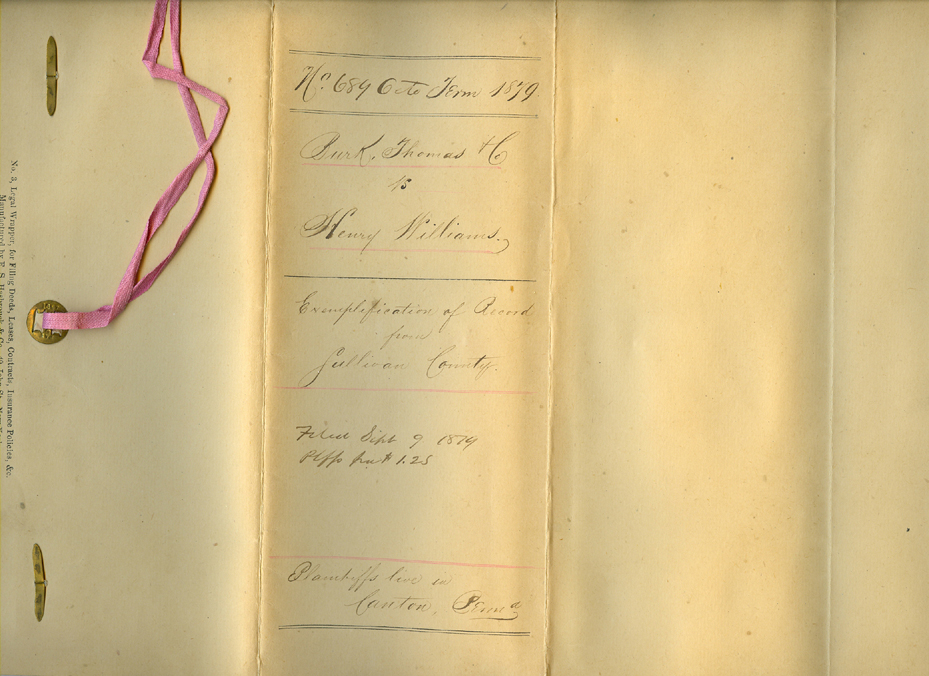 No. 3, Legal Wrapper, for Filing Deeds, Leases, Contracts, Insurance Policies, &c.
Manufactured by E. S. & Co.
No. 689 Octo Term 1879
Burk, Thomas & Co
vs
Henry Williams.
Exemplification of Record
from
Sullivan County.
Filed Sept 9 1879
Plffs 1.25
Plaintiffs live in
Canton, Penna